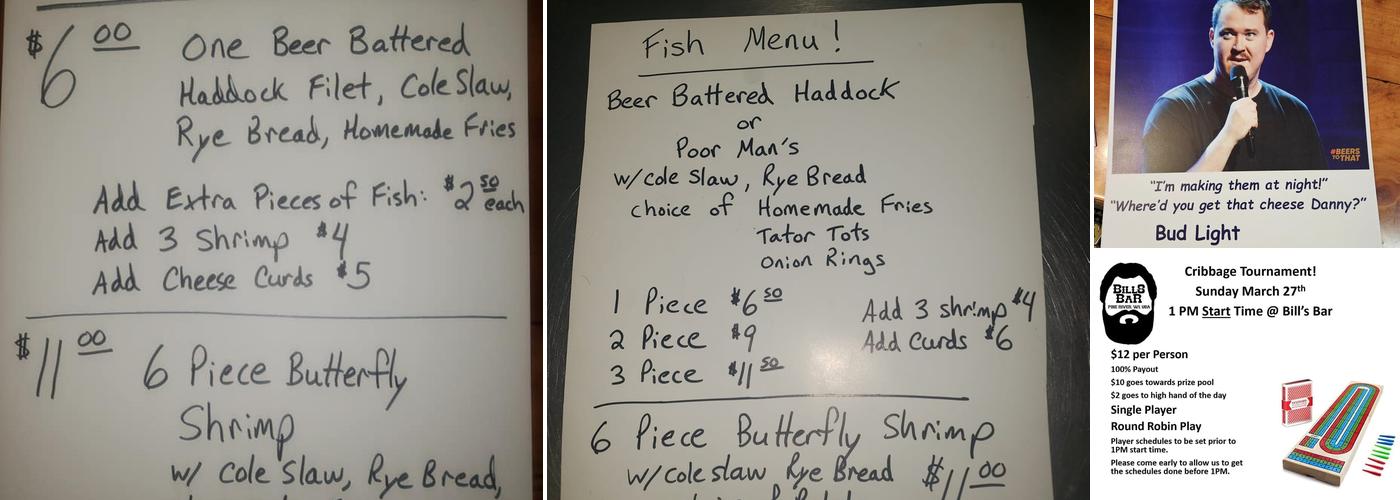 $6 00 One Beer Battered
Haddock Filet, Cole Slaw,
Rye Bread, Homemade Fries
Add Extra Pieces of Fish: $2 50 each
Add 3 Shrimp $4
Add Cheese Curds $5
$11 00 6 Piece Butterfly
Shrimp
w/ Cole Slaw, Rye Bread,
Fish Menu!
Beer Battered Haddock
or
Poor Man's
w/cole Slaw, Rye Bread
choice of Homemade Fries
Tator Tots
Onion Rings
1 Piece $6 50
2 Piece $9
3 Piece $11 50
Add 3 shrimp $4
Add Curds $6
6 Piece Butterfly Shrimp
w/cole slaw Rye Bread $11 00
#BEERS
TO THAT
"I'm making them at night!"
"Where'd you get that cheese Danny?"
Bud Light
BILL'S
BAR
PINE RIVER, WI. USA
Cribbage Tournament!
Sunday March 27th
1 PM Start Time @ Bill's Bar
$12 per Person
100% Payout
$10 goes towards prize pool
$2 goes to high hand of the day
Single Player
Round Robin Play
Player schedules to be set prior to
1PM start time.
Please come early to allow us to get
the schedules done before 1PM.